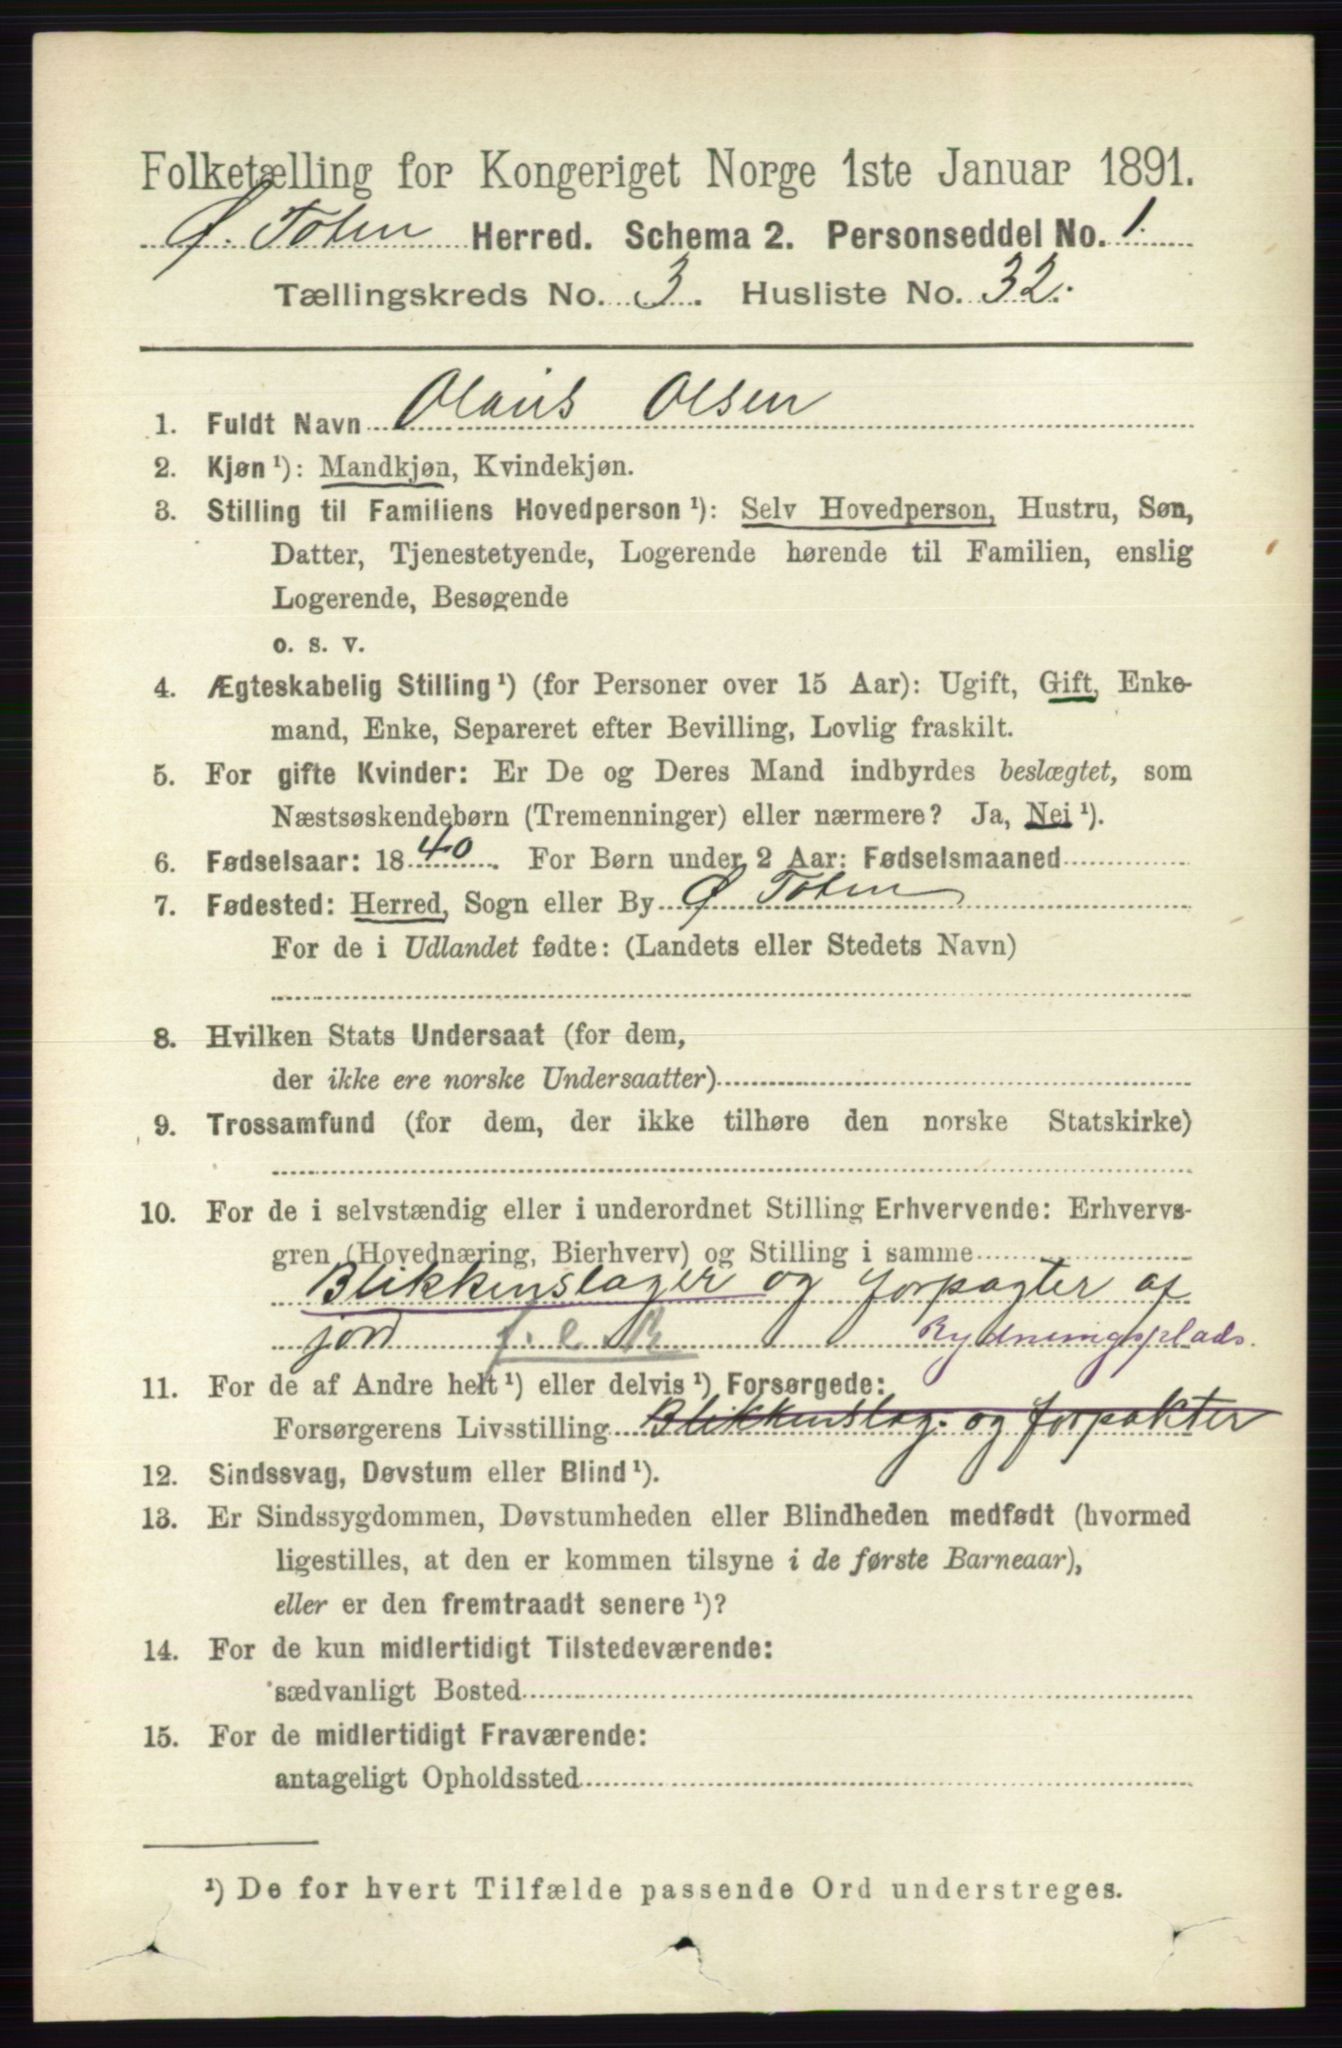 Folketælling for Kongeriget Norge 1ste Januar 1891.
Ø. Toten Herred. Schema 2. Personseddel No. 1.
Tællingskreds No. 3. Husliste No. 32.
1. Fuldt Navn Olaus Olsen
2. Kjøn ¹): Mandkjøn, Kvindekjøn.
3. Stilling til Familiens Hovedperson ¹): Selv Hovedperson, Hustru, Søn,
Datter, Tjenestetyende, Logerende hørende til Familien, enslig
Logerende, Besøgende
o. s. v.
4. Ægteskabelig Stilling ¹) (for Personer over 15 Aar): Ugift, Gift, Enke-
mand, Enke, Separeret efter Bevilling, Lovlig fraskilt.
5. For gifte Kvinder: Er De og Deres Mand indbyrdes beslægtet, som
Næstsøskendebørn (Tremenninger) eller nærmere? Ja, Nei ¹).
6. Fødselsaar: 1840. For Børn under 2 Aar: Fødselsmaaned
7. Fødested: Herred, Sogn eller By Ø Toten
For de i Udlandet fødte: (Landets eller Stedets Navn)
8. Hvilken Stats Undersaat (for dem,
der ikke ere norske Undersaatter)
9. Trossamfund (for dem, der ikke tilhøre den norske Statskirke)
10. For de i selvstændig eller i underordnet Stilling Erhvervende: Erhvervs-
gren (Hovednæring, Bierhverv) og Stilling i samme
Blikkenslager og forpagter af
jord Rydningsplads.
11. For de af Andre helt ¹) eller delvis ¹) Forsørgede:
Forsørgerens Livsstilling Blikkenslag. og forpakter
12. Sindssvag, Døvstum eller Blind ¹).
13. Er Sindssygdommen, Døvstumheden eller Blindheden medfødt (hvormed
ligestilles, at den er kommen tilsyne i de første Barneaar),
eller er den fremtraadt senere ¹)?
14. For de kun midlertidigt Tilstedeværende:
sædvanligt Bosted
15. For de midlertidigt Fraværende:
antageligt Opholdssted
¹) De for hvert Tilfælde passende Ord understreges.